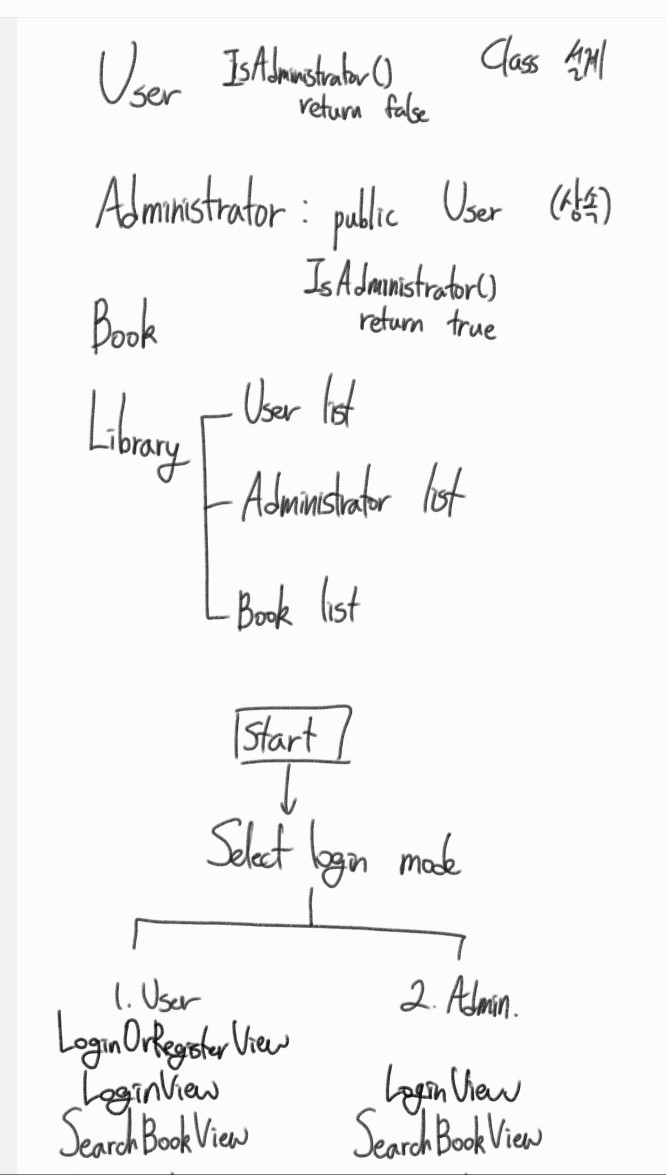 User IsAdministrator() Class 설계
return false
Administrator : public User (상속)
IsAdministrator()
return true
Book
Library
User list
Administrator list
Book list
Start
Select login mode
1. User
LoginOrRegisterView
LoginView
SearchBookView
2. Admin.
LoginView
SearchBookView